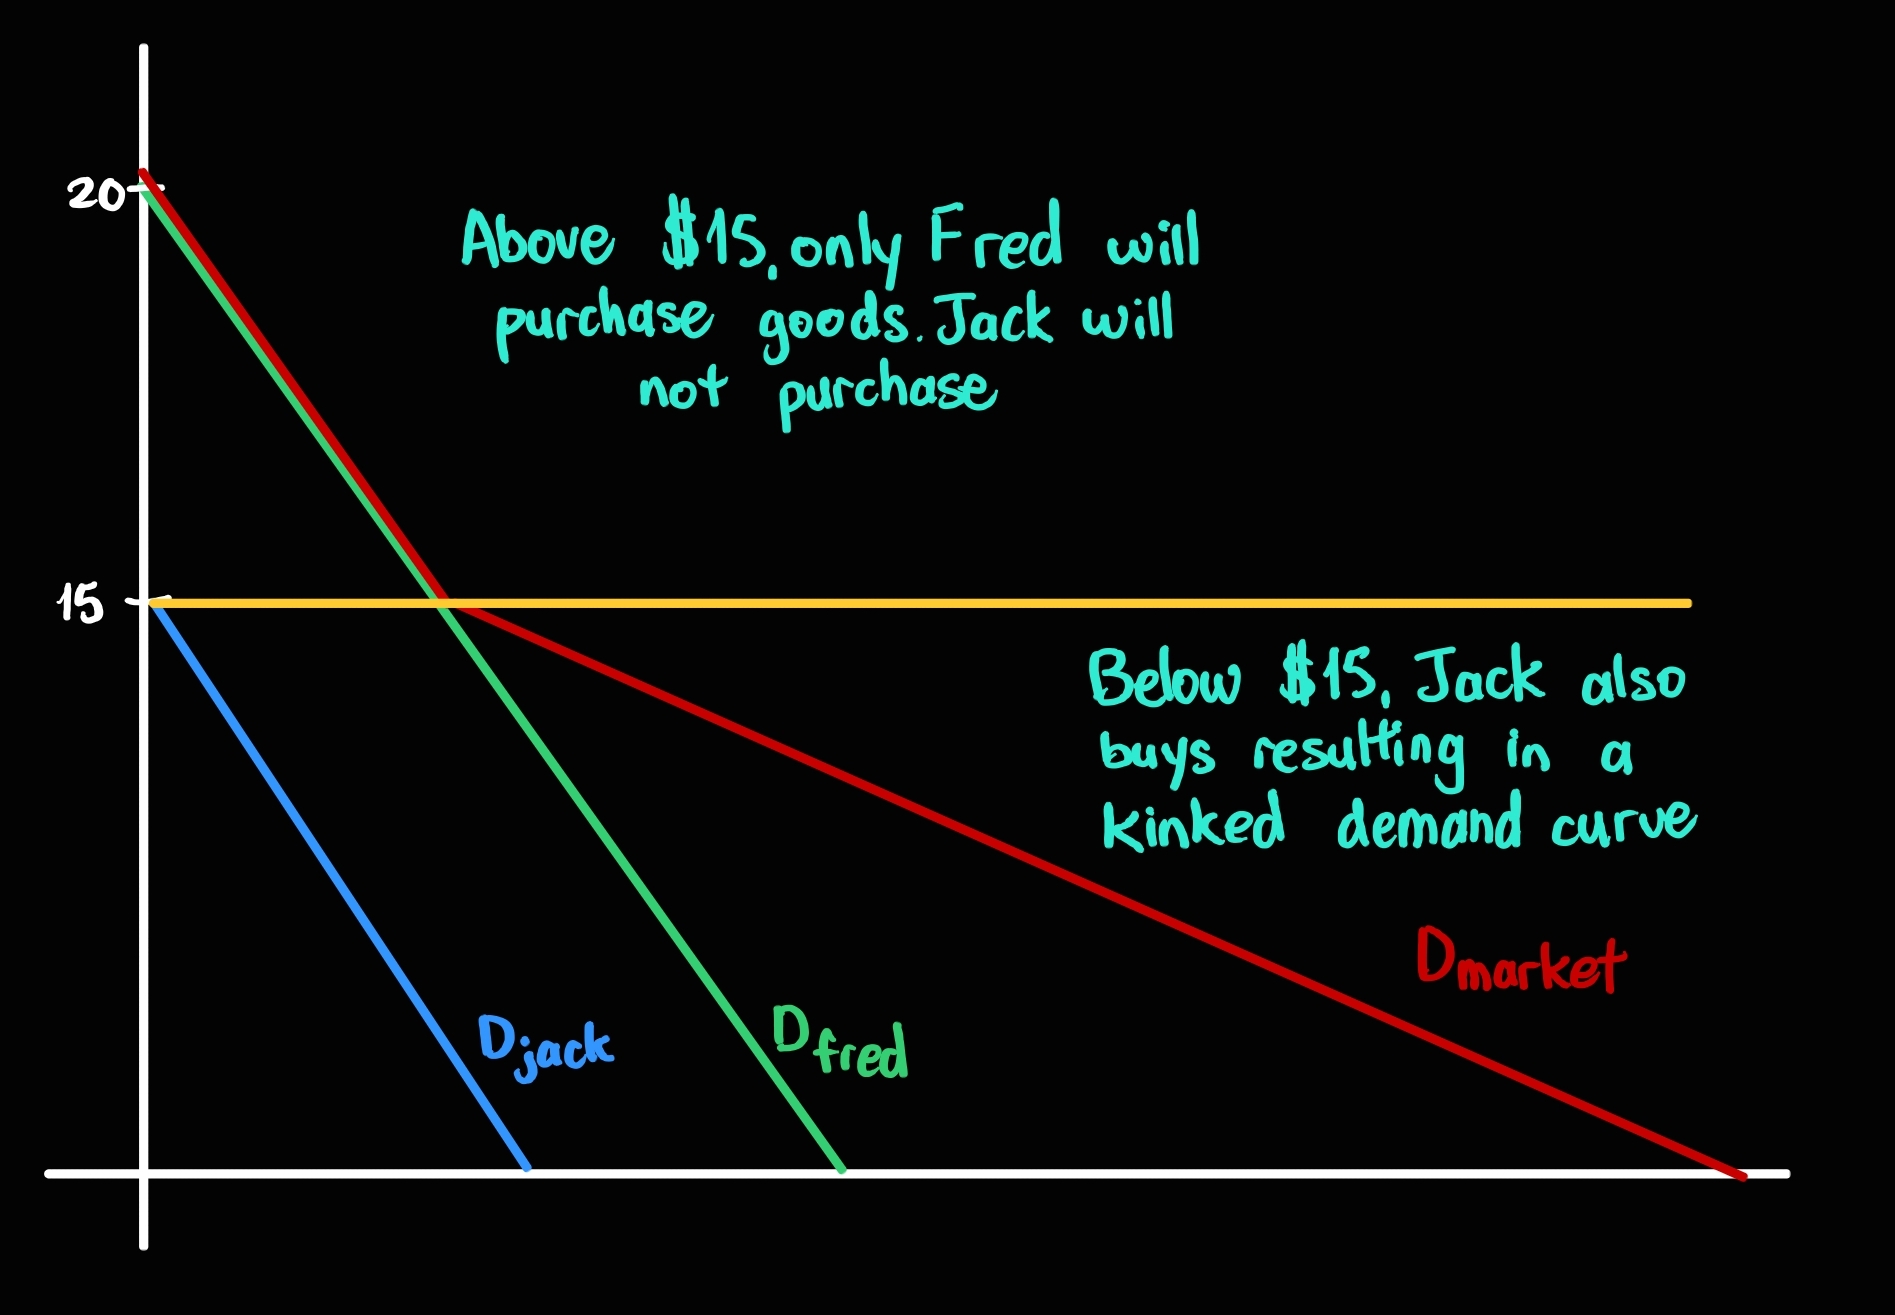 20
Above $15, only Fred will
purchase goods. Jack will
not purchase
15
Below $15, Jack also
buys resulting in a
kinked demand curve
Dmarket
Djack
Dfred